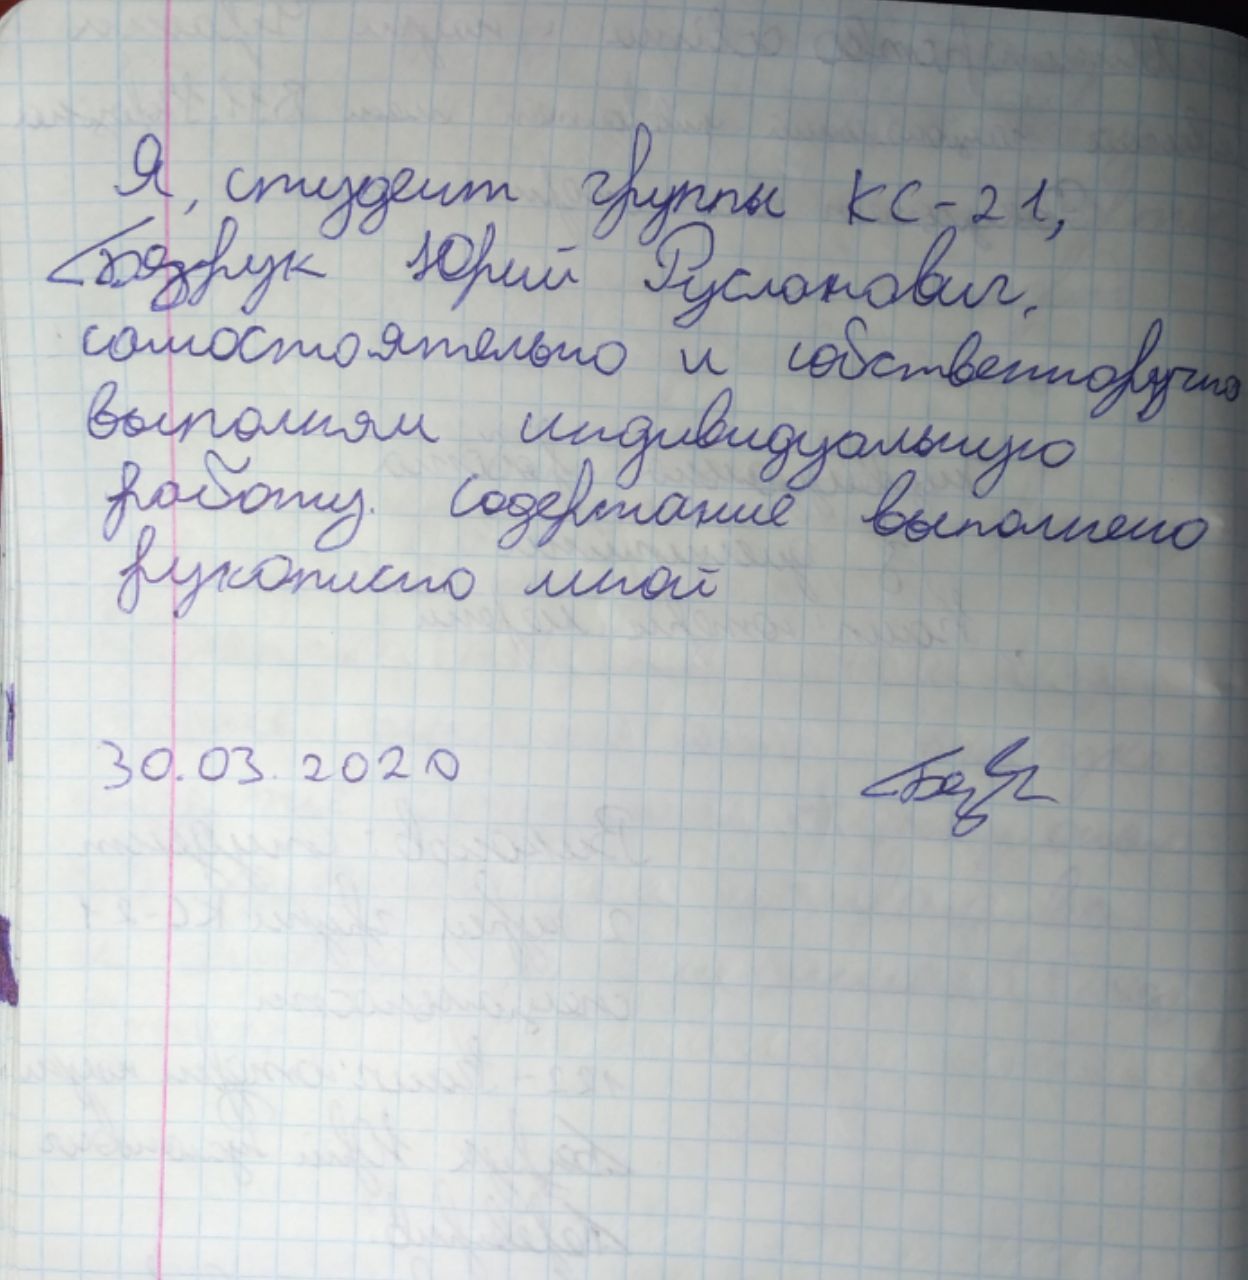 Я, студент группы КС-21,
Бозрук Юрий Русланович,
самостоятельно и собственноручно
выполням индивидуальную
работу. Содержание выполнено
рукописно мной
30.03.2020